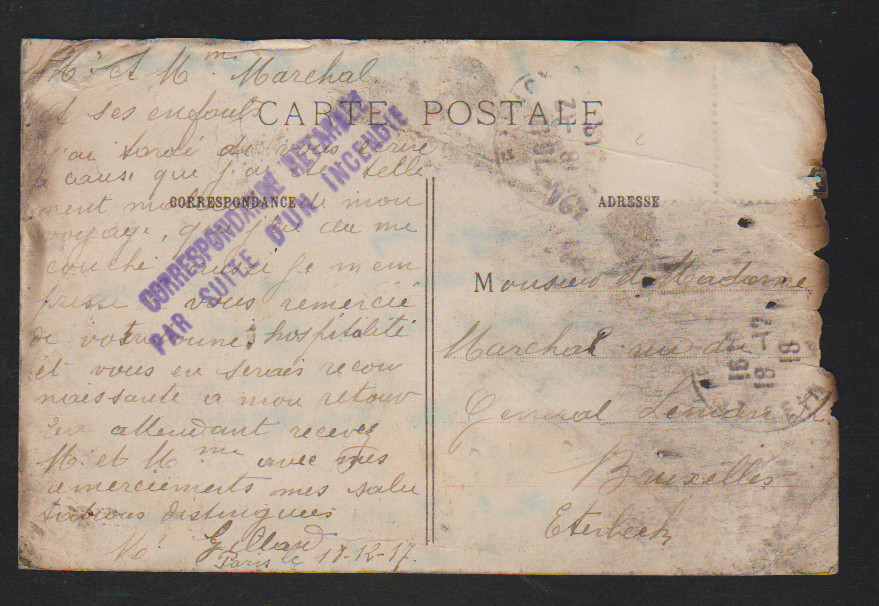 Mr et Mme Marchal
et ses enfants
CARTE POSTALE
j'ai tardé de vous écrire
a cause que j'ai telle
ment de mon
voyage, que j'ai du me
couché aussi je m'em
presse vous remercié
de votre bonne hospitalité
et vous en serais recon
naissante a mon retour
En attendant recevez
Mr et Mme avec mes
remerciements mes salu
tations distinguées
Mr Gilland
Paris le 17-12-17
CORRESPONDANCE RETARDÉE
PAR SUITE D'UN INCENDIE
CORRESPONDANCE
ADRESSE
Monsieur de Madame
Marchal rue du
General Leman
Bruxelles
Eterbeck
18
18